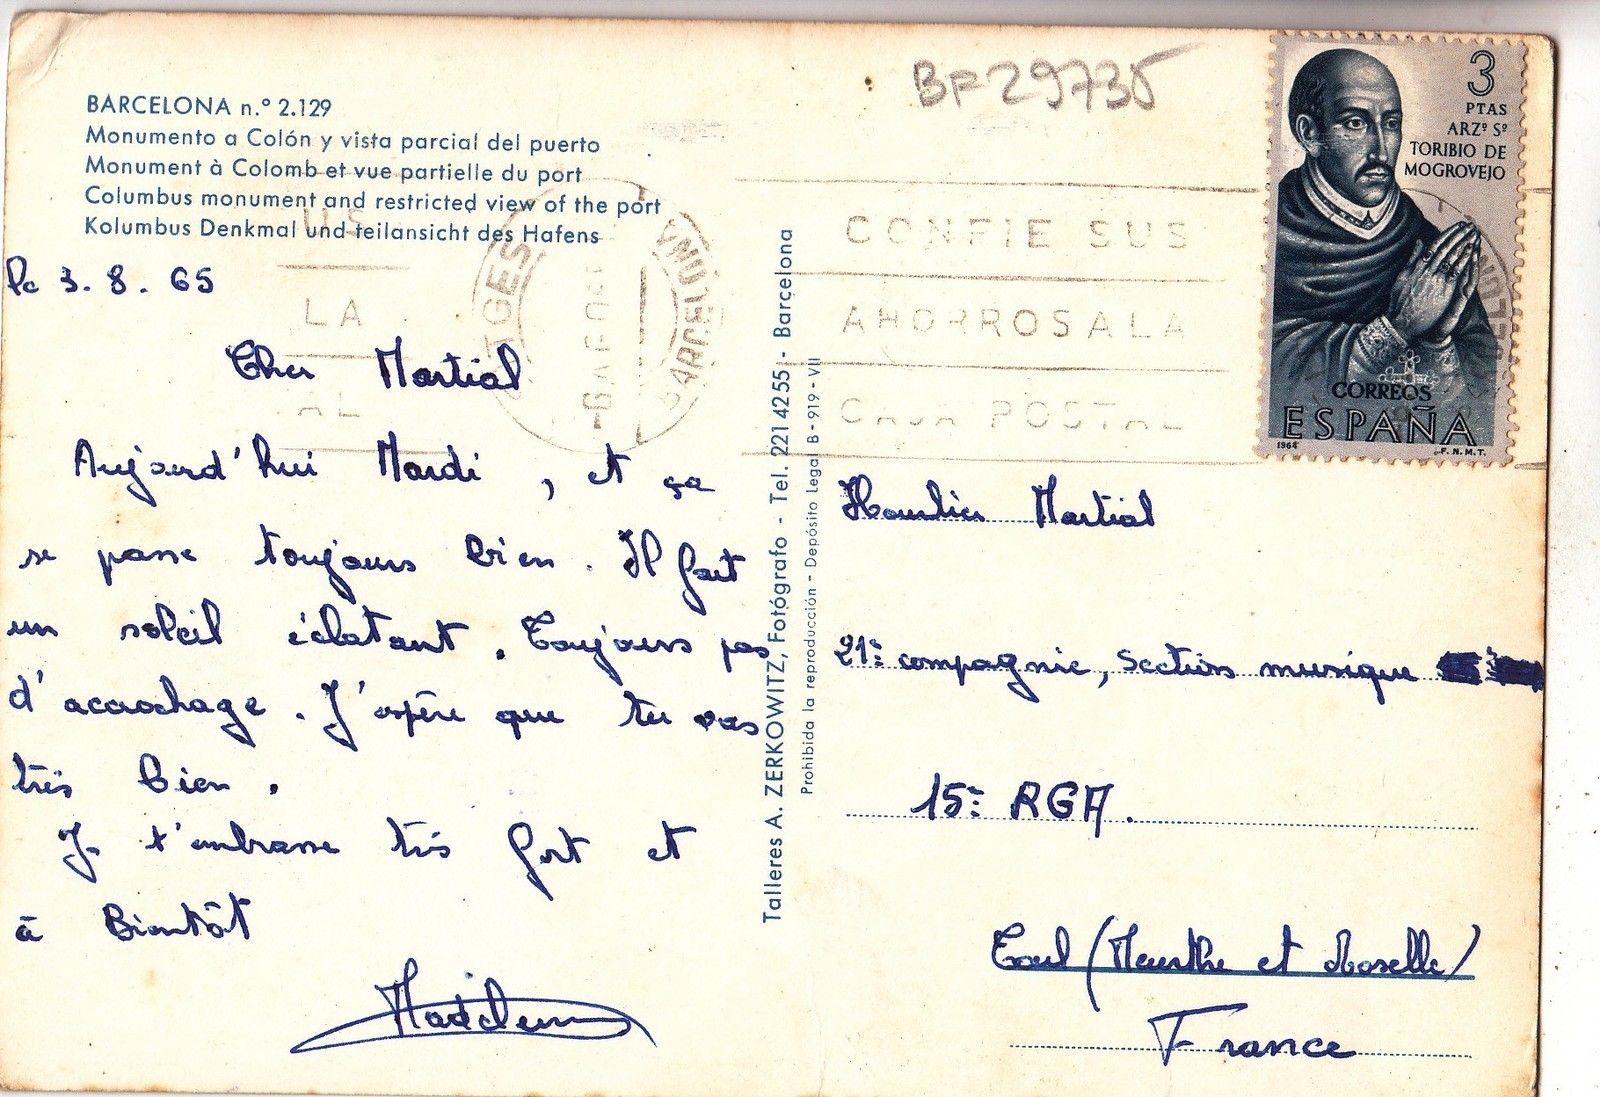 BF29735
BARCELONA n.º 2.129
Monumento a Colón y vista parcial del puerto
Monument à Colomb et vue partielle du port
Columbus monument and restricted view of the port
Kolumbus Denkmal und teilansicht des Hafens
Le 3. 8. 65
Cher Martial
Aujourd'hui Mardi, et ça
se passe toujours bien. Il fait
un soleil éclatant. Toujours pas
d'accrochage. J'espère que tu vas
très bien.
Je t'embrasse très fort et
à Bientôt
Talleres A. ZERKOWITZ, Fotógrafo - Tel. 221 42 55 - Barcelona
Prohibida la reproducción - Depósito Legal B - 919 - VII
LA
AL
BARCELONA
CONFIE SUS
AHORROS A LA
CAJA POSTAL
3
PTAS
ARZº Sº
TORIBIO DE
MOGROVEJO
CORREOS
ESPAÑA
1964 F.N.M.T.
Martial
21e compagnie, Section musique
15e RGA.
Toul (Meurthe et Moselle)
France